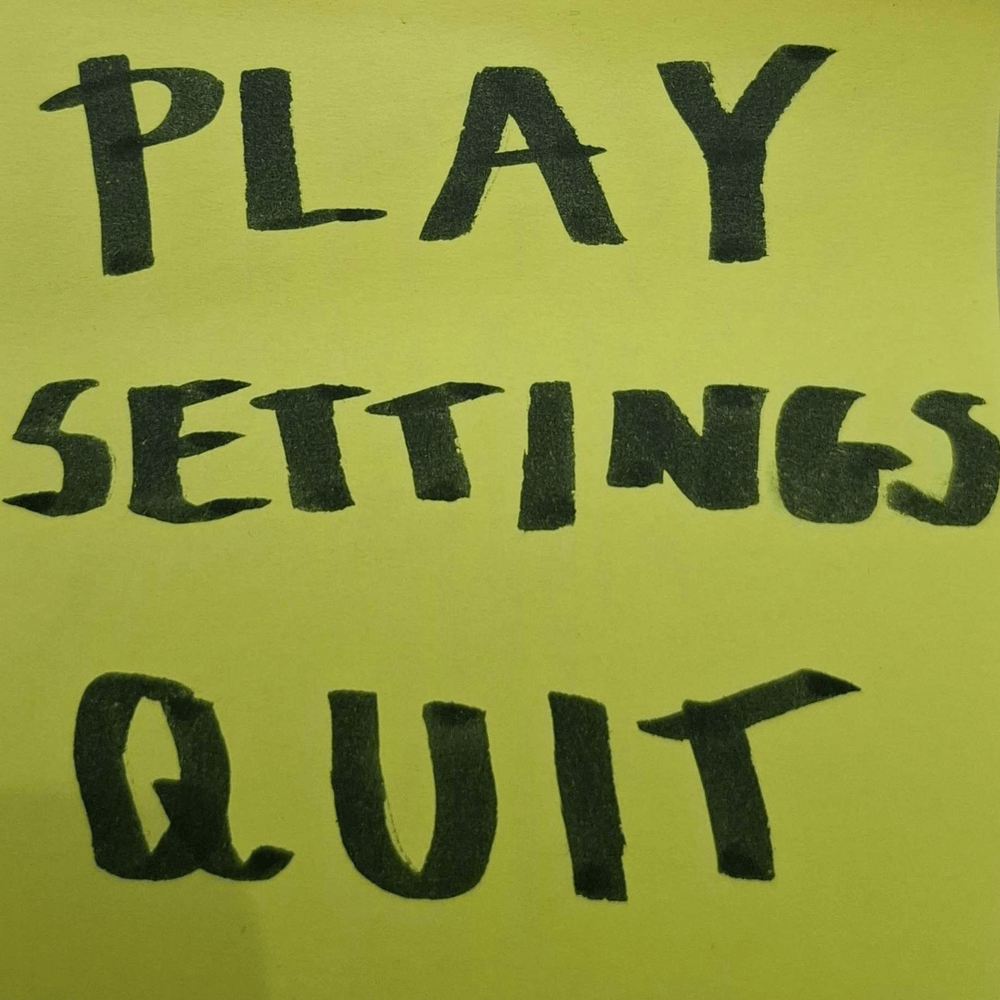 PLAY
SETTINGS
QUIT